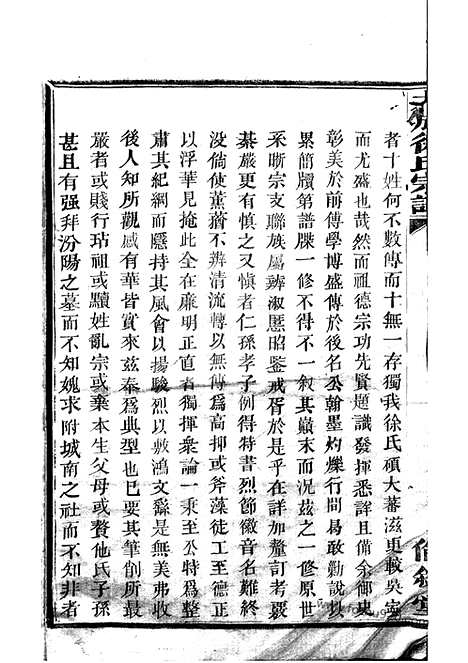 者十姓何不數傳而十無一存獨我徐氏碩大蕃滋更較吳
而尤盛也哉然而祖德宗功先賢題識發揮悉詳且備余卽
彰美於前傳學博盛傳於後名公翰墨灼爍行間曷敢勦說以
累簡牘第譜牒一修不得不一敘其巔末而况茲之一修原世
系晰宗支聯族屬辨淑慝昭鑒戒胥於是乎在詳加訂考
綦嚴更有慎之又慎者仁孫孝子例得特書烈節徽音名難終
没倘使薰蕕不辨清流轉以無傳爲高抑或斧藻徒工至德正
以浮華見掩此全在廉明正直者獨揮衆論一秉至公特爲整
肅其紀綱而隱持其風會以揚駿烈以敷鴻文繇是無美弗收
後人知所觀感有不皆實來茲奉爲典型也巳要其筆削所最
嚴者或賤行玷祖或黷姓亂宗或棄本生父母或贅他氏子孫
甚且有强拜汾陽之墓而不知媿求附城南之社而不知非者
徐氏宗譜